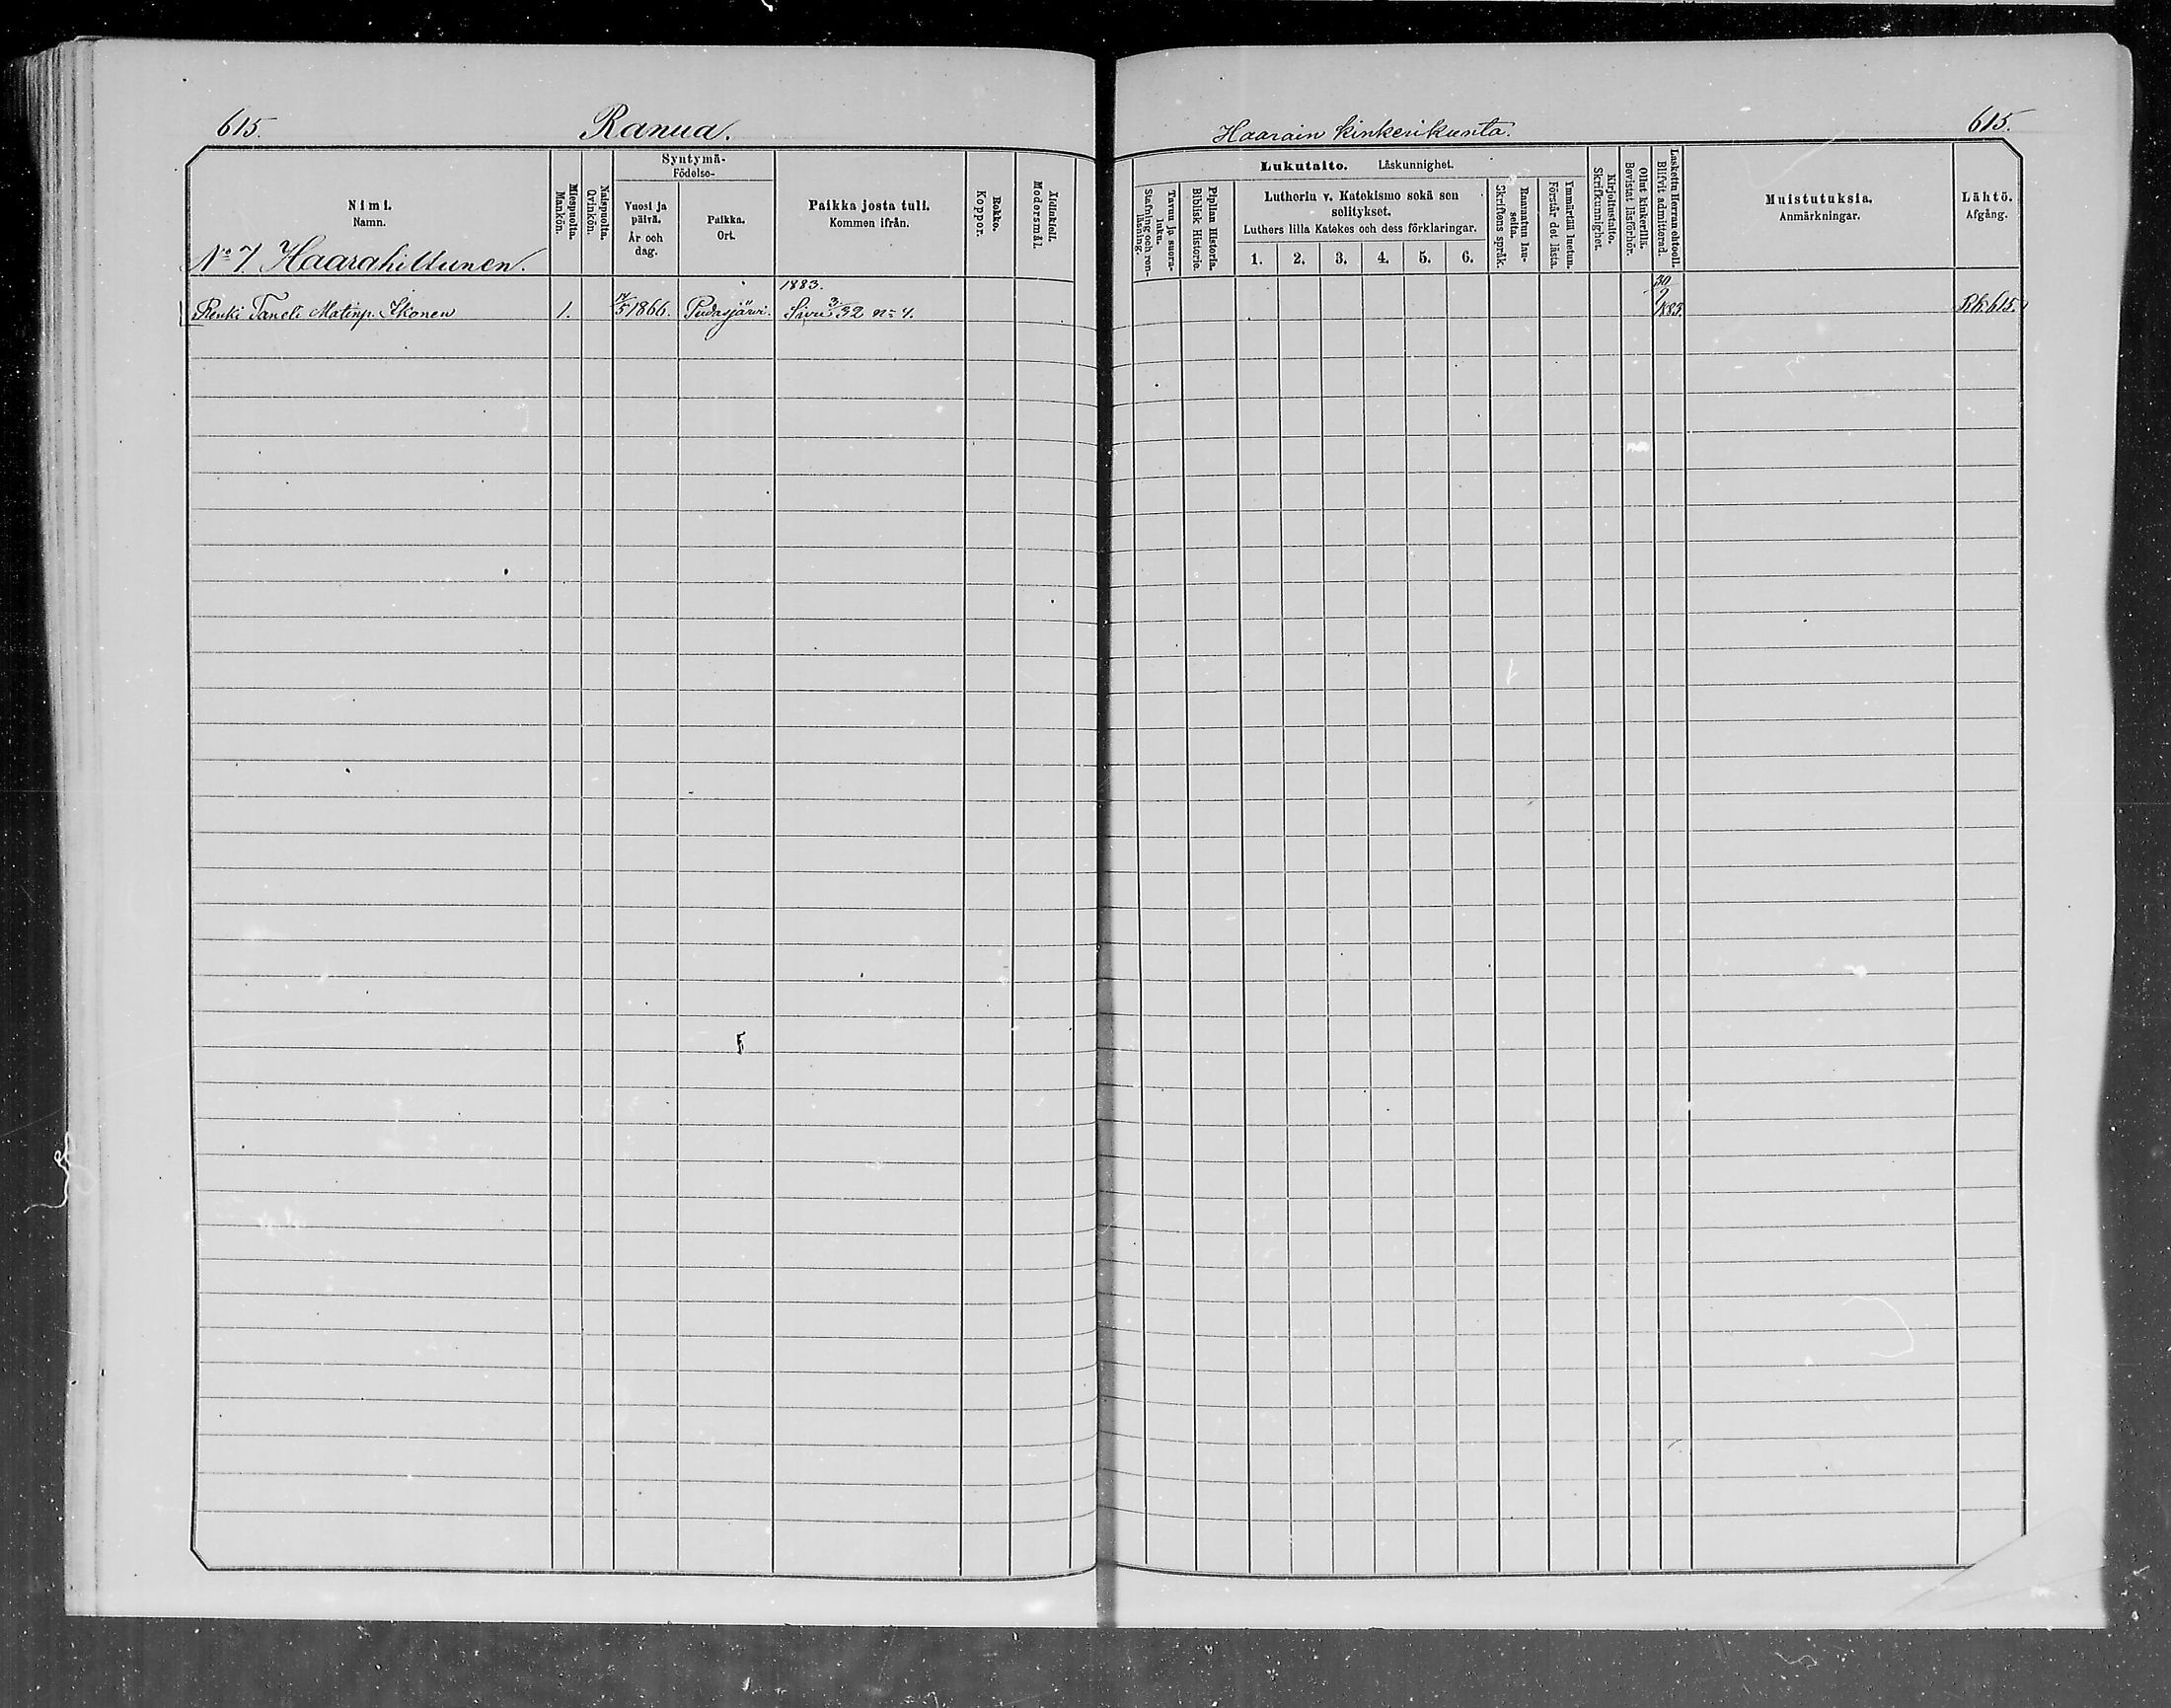 615.
Ranua.
Haarain kinkerikunta.
615.
Nimi.
Namn.
No 7. Haarahiltunen.
Miespuolta.
Mankön.
Naispuolta.
Qvinkön.
Syntymä-
Födelse-
Vuosi ja
päivä.
År och
dag.
Paikka.
Ort.
Paikka josta tuli.
Kommen ifrån.
Rokko.
Koppor.
Äidinkieli.
Modersmål.
Lukutaito. Läskunnighet.
Tavuu ja suora-
luku.
Stafning och ren-
läsning.
Piplian Historia.
Biblisk Historie.
Lutherin v. Katekismo sekä sen
selitykset.
Luthers lilla Katekes och dess förklaringar.
1. 2. 3. 4. 5. 6.
Raamatun lau-
seita.
Skriftens språk.
Ymmärtää luetun.
Förstår det lästa.
Kirjoitustaito.
Skrifkunnighet.
Ollut kinkerillä.
Bevistat läsförhör.
Laskettu Herran ehtooll.
Blifvit admitterad.
Muistutuksia.
Anmärkningar.
Lähtö.
Afgång.
1883.
Renki Taneli Matinp. Ikonen 1. 1866. Pudasjärvi. Sivu 32 no 4.
30
9
1883.
Rk. 615.